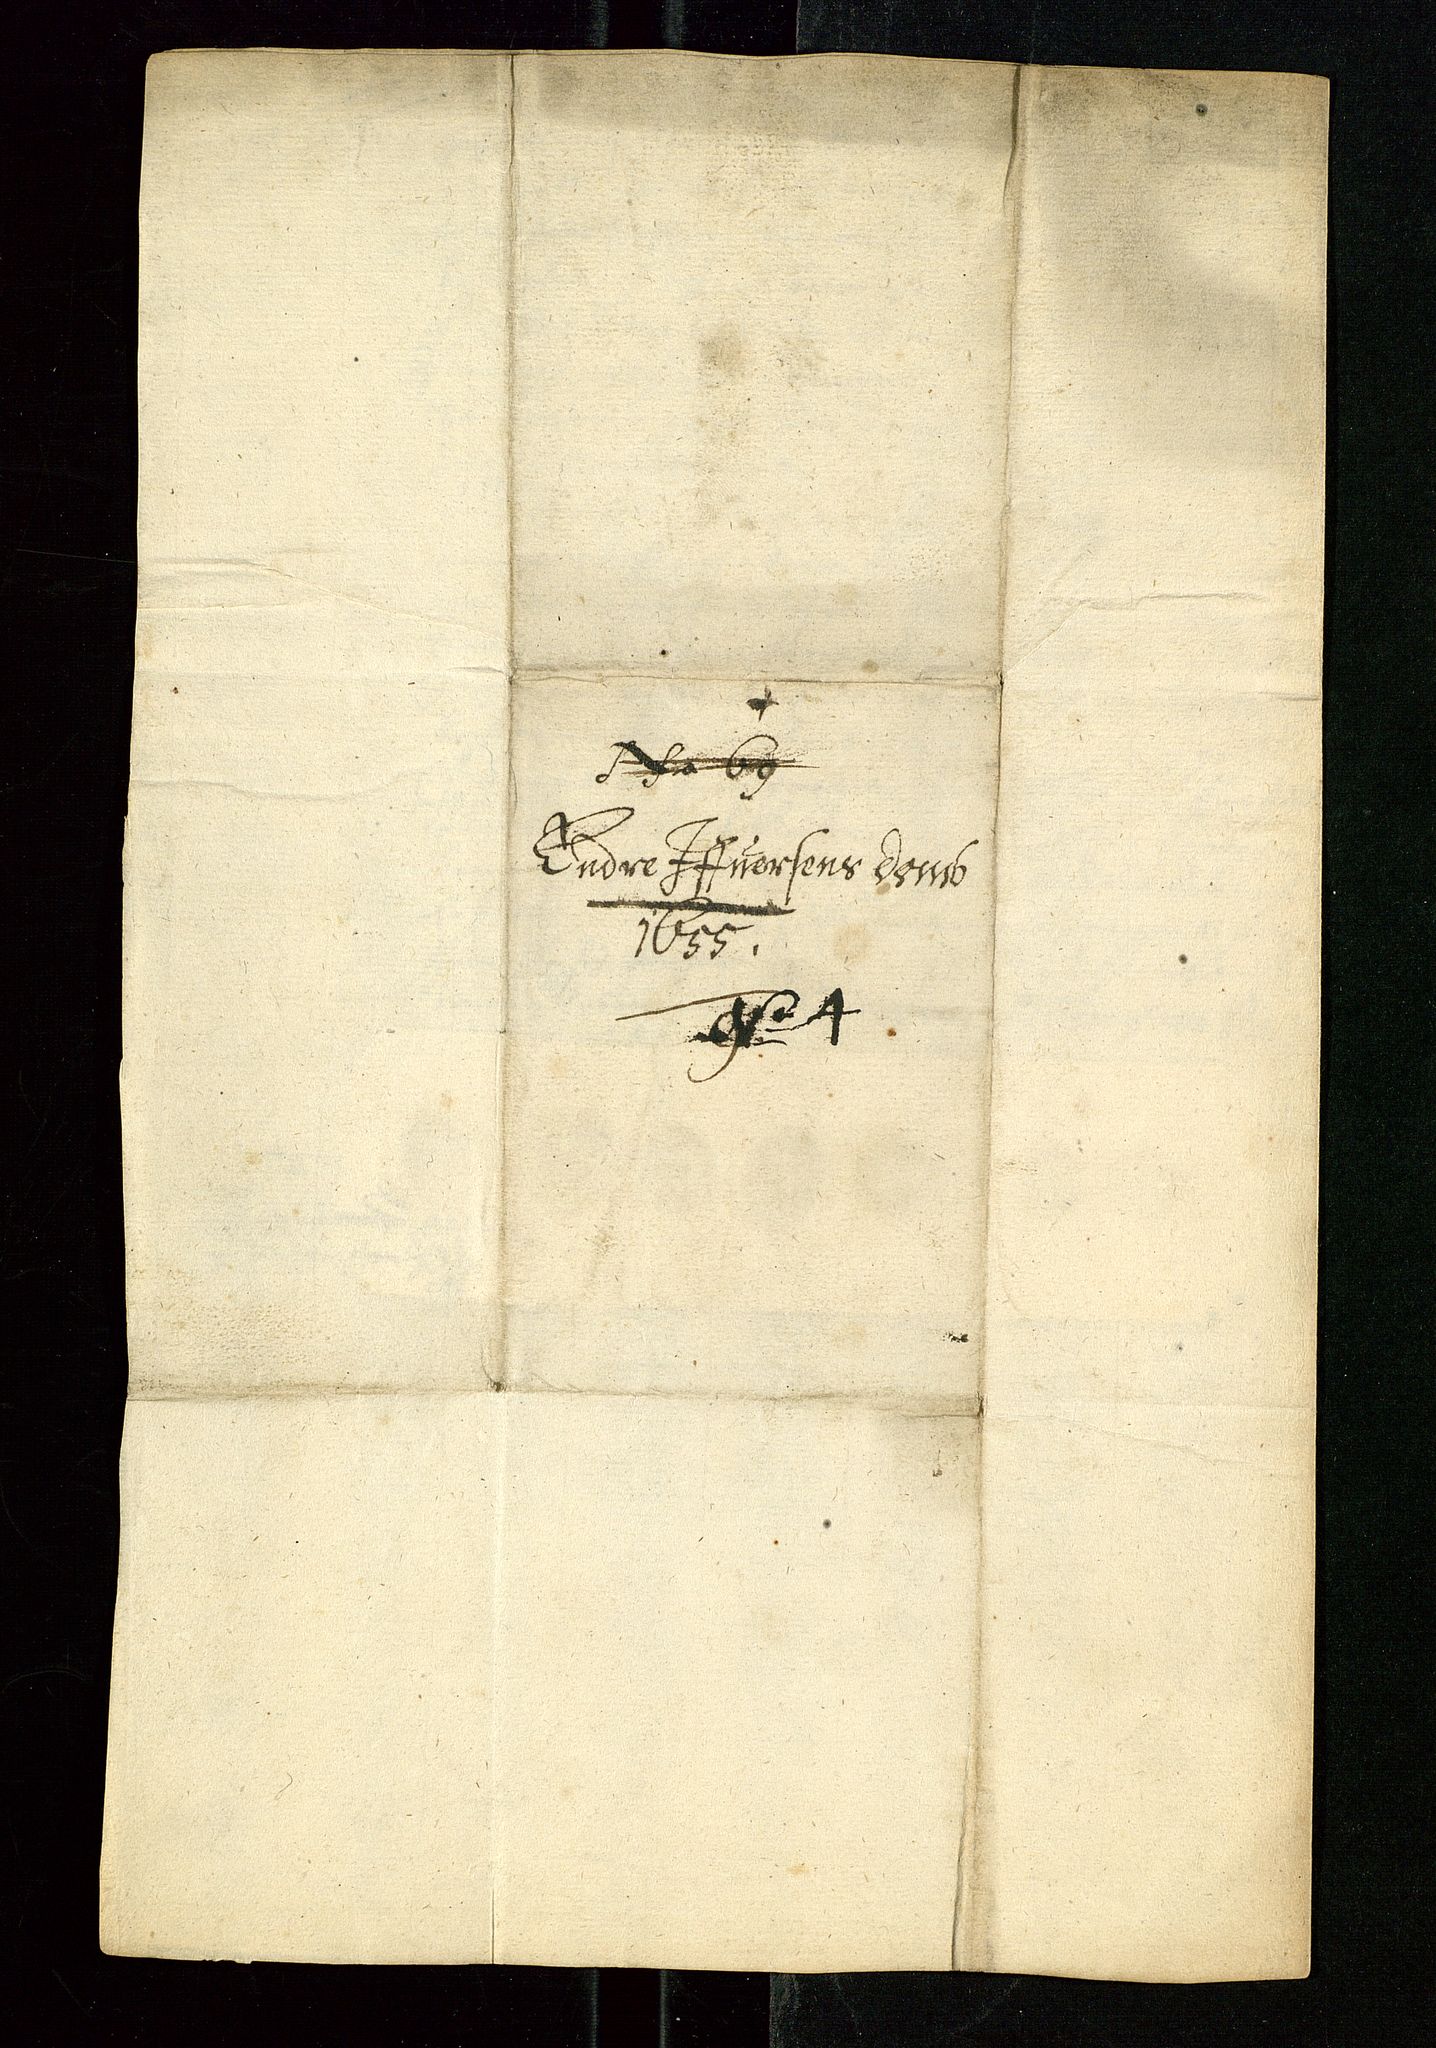 +
Nro 69
Endre Iffuersens domb
1655.
No 4